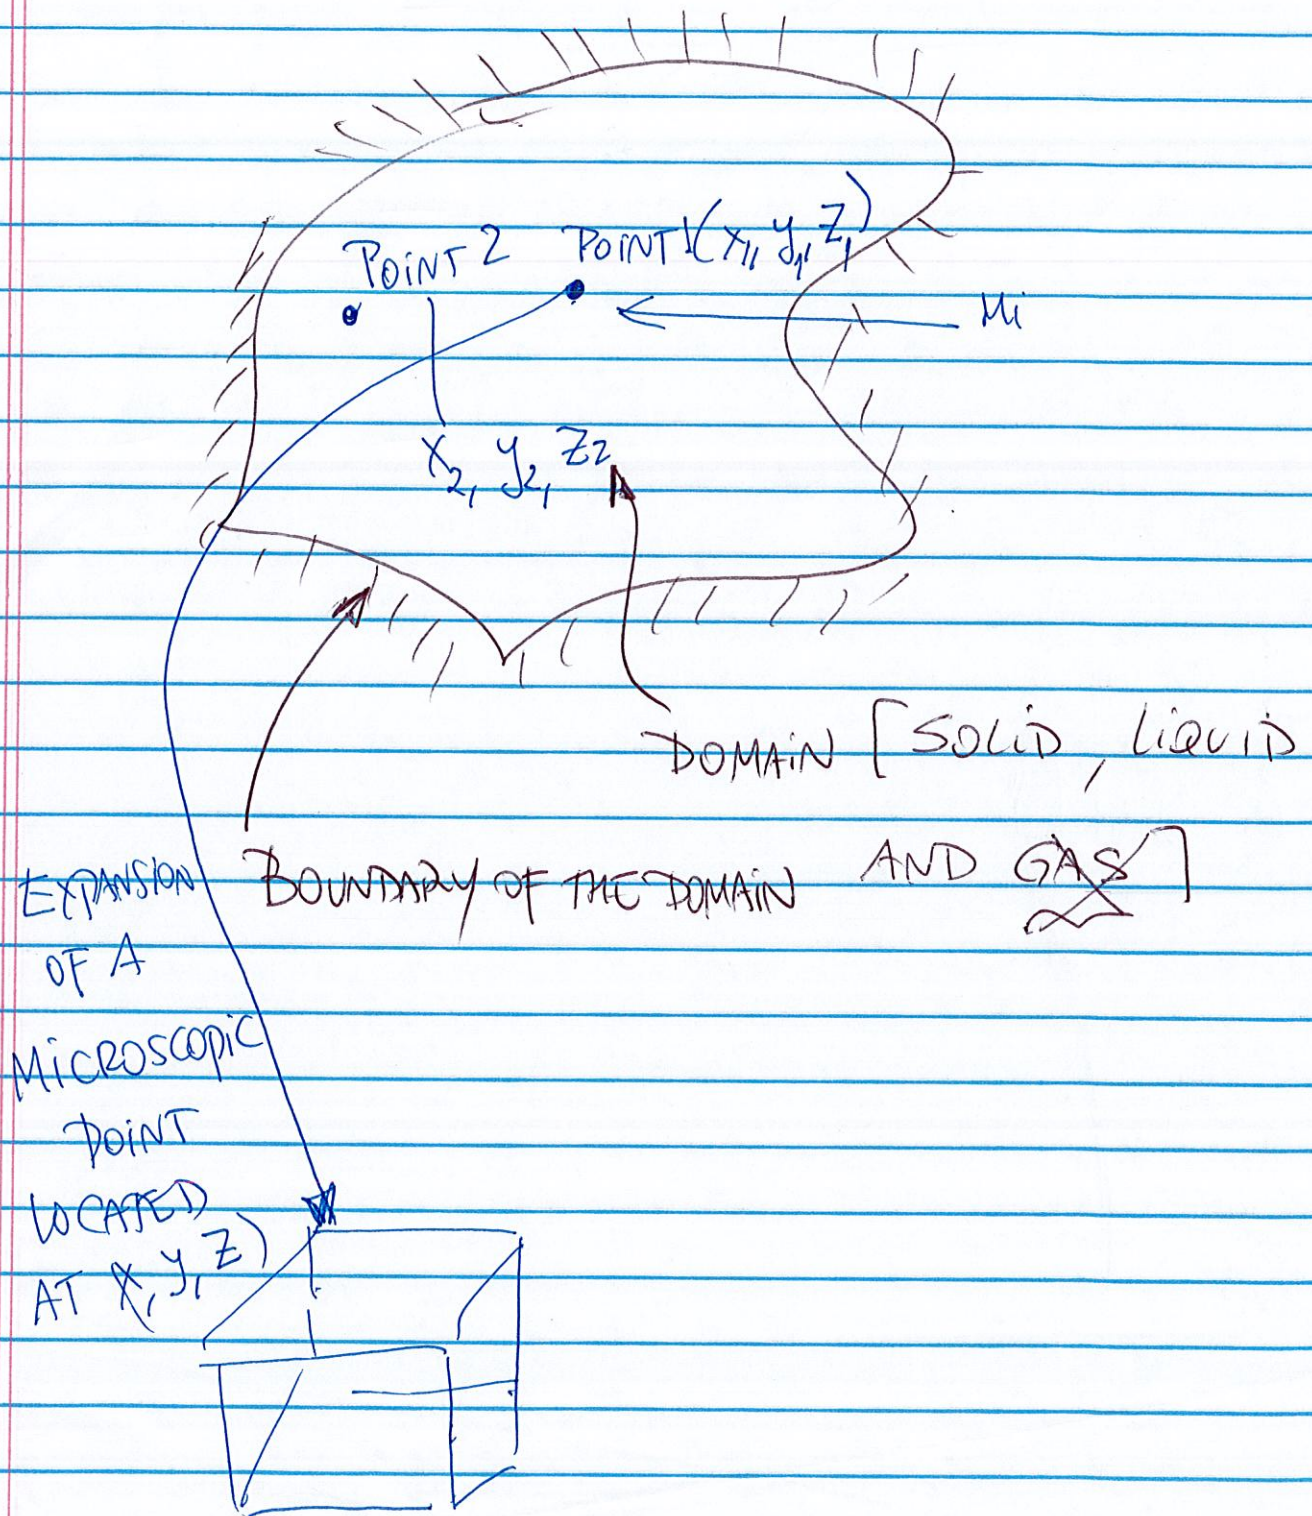 POINT 2
POINT 1 (X1, Y1, Z1)
Mi
X2, Y2, Z2
DOMAIN [SOLID, LIQUID
AND GAS]
BOUNDARY OF THE DOMAIN
EXPANSION
OF A
MICROSCOPIC
POINT
LOCATED
AT X, Y, Z)